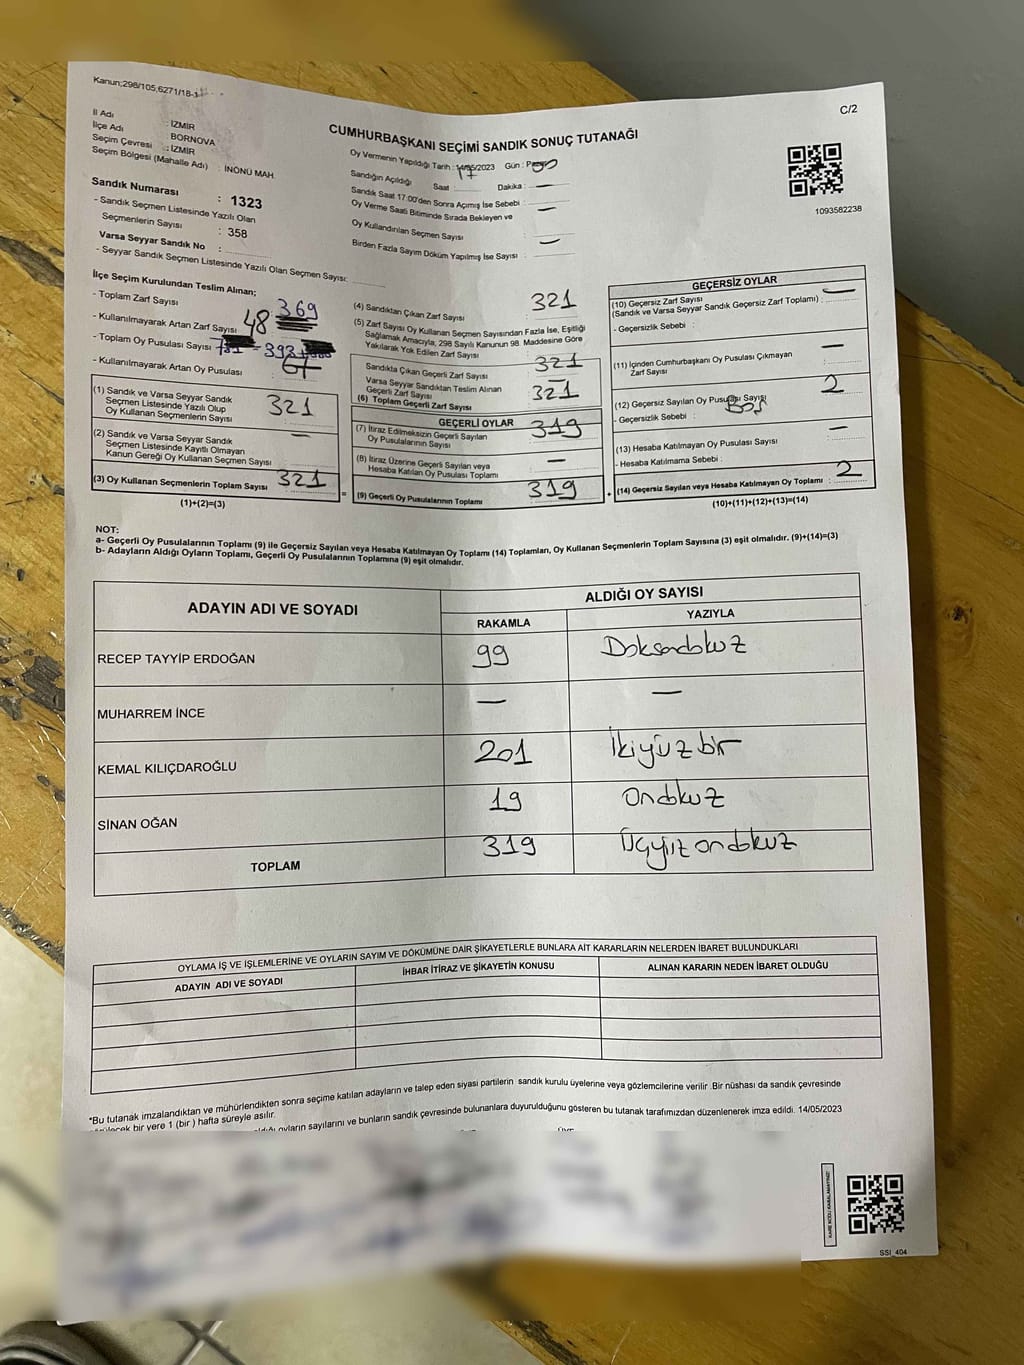 Kanun;298/105,6271/18-1
C/2
İl Adı : İZMİR
İlçe Adı : BORNOVA
Seçim Çevresi : İZMİR
Seçim Bölgesi (Mahalle Adı) : İNÖNÜ MAH.
Sandık Numarası : 1323
- Sandık Seçmen Listesinde Yazılı Olan
Seçmenlerin Sayısı : 358
Varsa Seyyar Sandık No :
- Seyyar Sandık Seçmen Listesinde Yazılı Olan Seçmen Sayısı:
CUMHURBAŞKANI SEÇİMİ SANDIK SONUÇ TUTANAĞI
Oy Vermenin Yapıldığı Tarih : 14/05/2023 Gün :
Sandığın Açıldığı Saat : Dakika : —
Sandık Saat 17:00'den Sonra Açımış İse Sebebi :
Oy Verme Saati Bitiminde Sırada Bekleyen ve —
Oy Kullandırılan Seçmen Sayısı :
Birden Fazla Sayım Döküm Yapılmış İse Sayısı : —
1093582238
İlçe Seçim Kurulundan Teslim Alınan;
- Toplam Zarf Sayısı 369
- Kullanılmayarak Artan Zarf Sayısı 48
- Toplam Oy Pusulası Sayısı
- Kullanılmayarak Artan Oy Pusulası
(1) Sandık ve Varsa Seyyar Sandık
Seçmen Listesinde Yazılı Olup
Oy Kullanan Seçmenlerin Sayısı : 321
(2) Sandık ve Varsa Seyyar Sandık
Seçmen Listesinde Kayıtlı Olmayan
Kanun Gereği Oy Kullanan Seçmen Sayısı : —
(3) Oy Kullanan Seçmenlerin Toplam Sayısı : 321
(1)+(2)=(3)
(4) Sandıktan Çıkan Zarf Sayısı : 321
(5) Zarf Sayısı Oy Kullanan Seçmen Sayısından Fazla İse, Eşitliği
Sağlamak Amacıyla, 298 Sayılı Kanunun 98. Maddesine Göre
Yakılarak Yok Edilen Zarf Sayısı :
Sandıkta Çıkan Geçerli Zarf Sayısı : 321
Varsa Seyyar Sandıktan Teslim Alınan
Geçerli Zarf Sayısı : —
(6) Toplam Geçerli Zarf Sayısı : 321
GEÇERLİ OYLAR
(7) İtiraz Edilmeksizin Geçerli Sayılan
Oy Pusulalarının Sayısı : 319
(8) İtiraz Üzerine Geçerli Sayılan veya
Hesaba Katılan Oy Pusulası Toplamı : —
=
(9) Geçerli Oy Pusulalarının Toplamı : 319
GEÇERSİZ OYLAR
(10) Geçersiz Zarf Sayısı
(Sandık ve Varsa Seyyar Sandık Geçersiz Zarf Toplamı) : —
- Geçersizlik Sebebi :
(11) İçinden Cumhurbaşkanı Oy Pusulası Çıkmayan
Zarf Sayısı : —
(12) Geçersiz Sayılan Oy Pusulası Sayısı : 2
- Geçersizlik Sebebi : Boş
(13) Hesaba Katılmayan Oy Pusulası Sayısı : —
- Hesaba Katılmama Sebebi :
+
(14) Geçersiz Sayılan veya Hesaba Katılmayan Oy Toplamı : 2
(10)+(11)+(12)+(13)=(14)
NOT:
a- Geçerli Oy Pusulalarının Toplamı (9) ile Geçersiz Sayılan veya Hesaba Katılmayan Oy Toplamı (14) Toplamları, Oy Kullanan Seçmenlerin Toplam Sayısına (3) eşit olmalıdır. (9)+(14)=(3)
b- Adayların Aldığı Oyların Toplamı, Geçerli Oy Pusulalarının Toplamına (9) eşit olmalıdır.
ADAYIN ADI VE SOYADI
ALDIĞI OY SAYISI
RAKAMLA YAZIYLA
RECEP TAYYİP ERDOĞAN 99 Doksandokuz
MUHARREM İNCE — —
KEMAL KILIÇDAROĞLU 201 İkiyüzbir
SİNAN OĞAN 19 Ondokuz
TOPLAM 319 Üçyüzondokuz
OYLAMA İŞ VE İŞLEMLERİNE VE OYLARIN SAYIM VE DÖKÜMÜNE DAİR ŞİKAYETLERLE BUNLARA AİT KARARLARIN NELERDEN İBARET BULUNDUKLARI
ADAYIN ADI VE SOYADI İHBAR İTİRAZ VE ŞİKAYETİN KONUSU ALINAN KARARIN NEDEN İBARET OLDUĞU
*Bu tutanak imzalandıktan ve mühürlendikten sonra seçime katılan adayların ve talep eden siyasi partilerin sandık kurulu üyelerine veya gözlemcilerine verilir .Bir nüshası da sandık çevresinde
bir yere 1 (bir ) hafta süreyle asılır.
oyların sayılarını ve bunların sandık çevresinde bulunanlara duyurulduğunu gösteren bu tutanak tarafımızdan düzenlenerek imza edildi. 14/05/2023
SSI_404